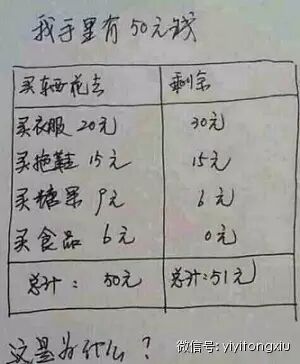 我手里有50元钱
买东西花去 剩余
买衣服 20元 30元
买拖鞋 15元 15元
买糖果 9元 6元
买食品 6元 0元
总计: 50元 总计:51元
这是为什么?
微信号: yiyitongxiu